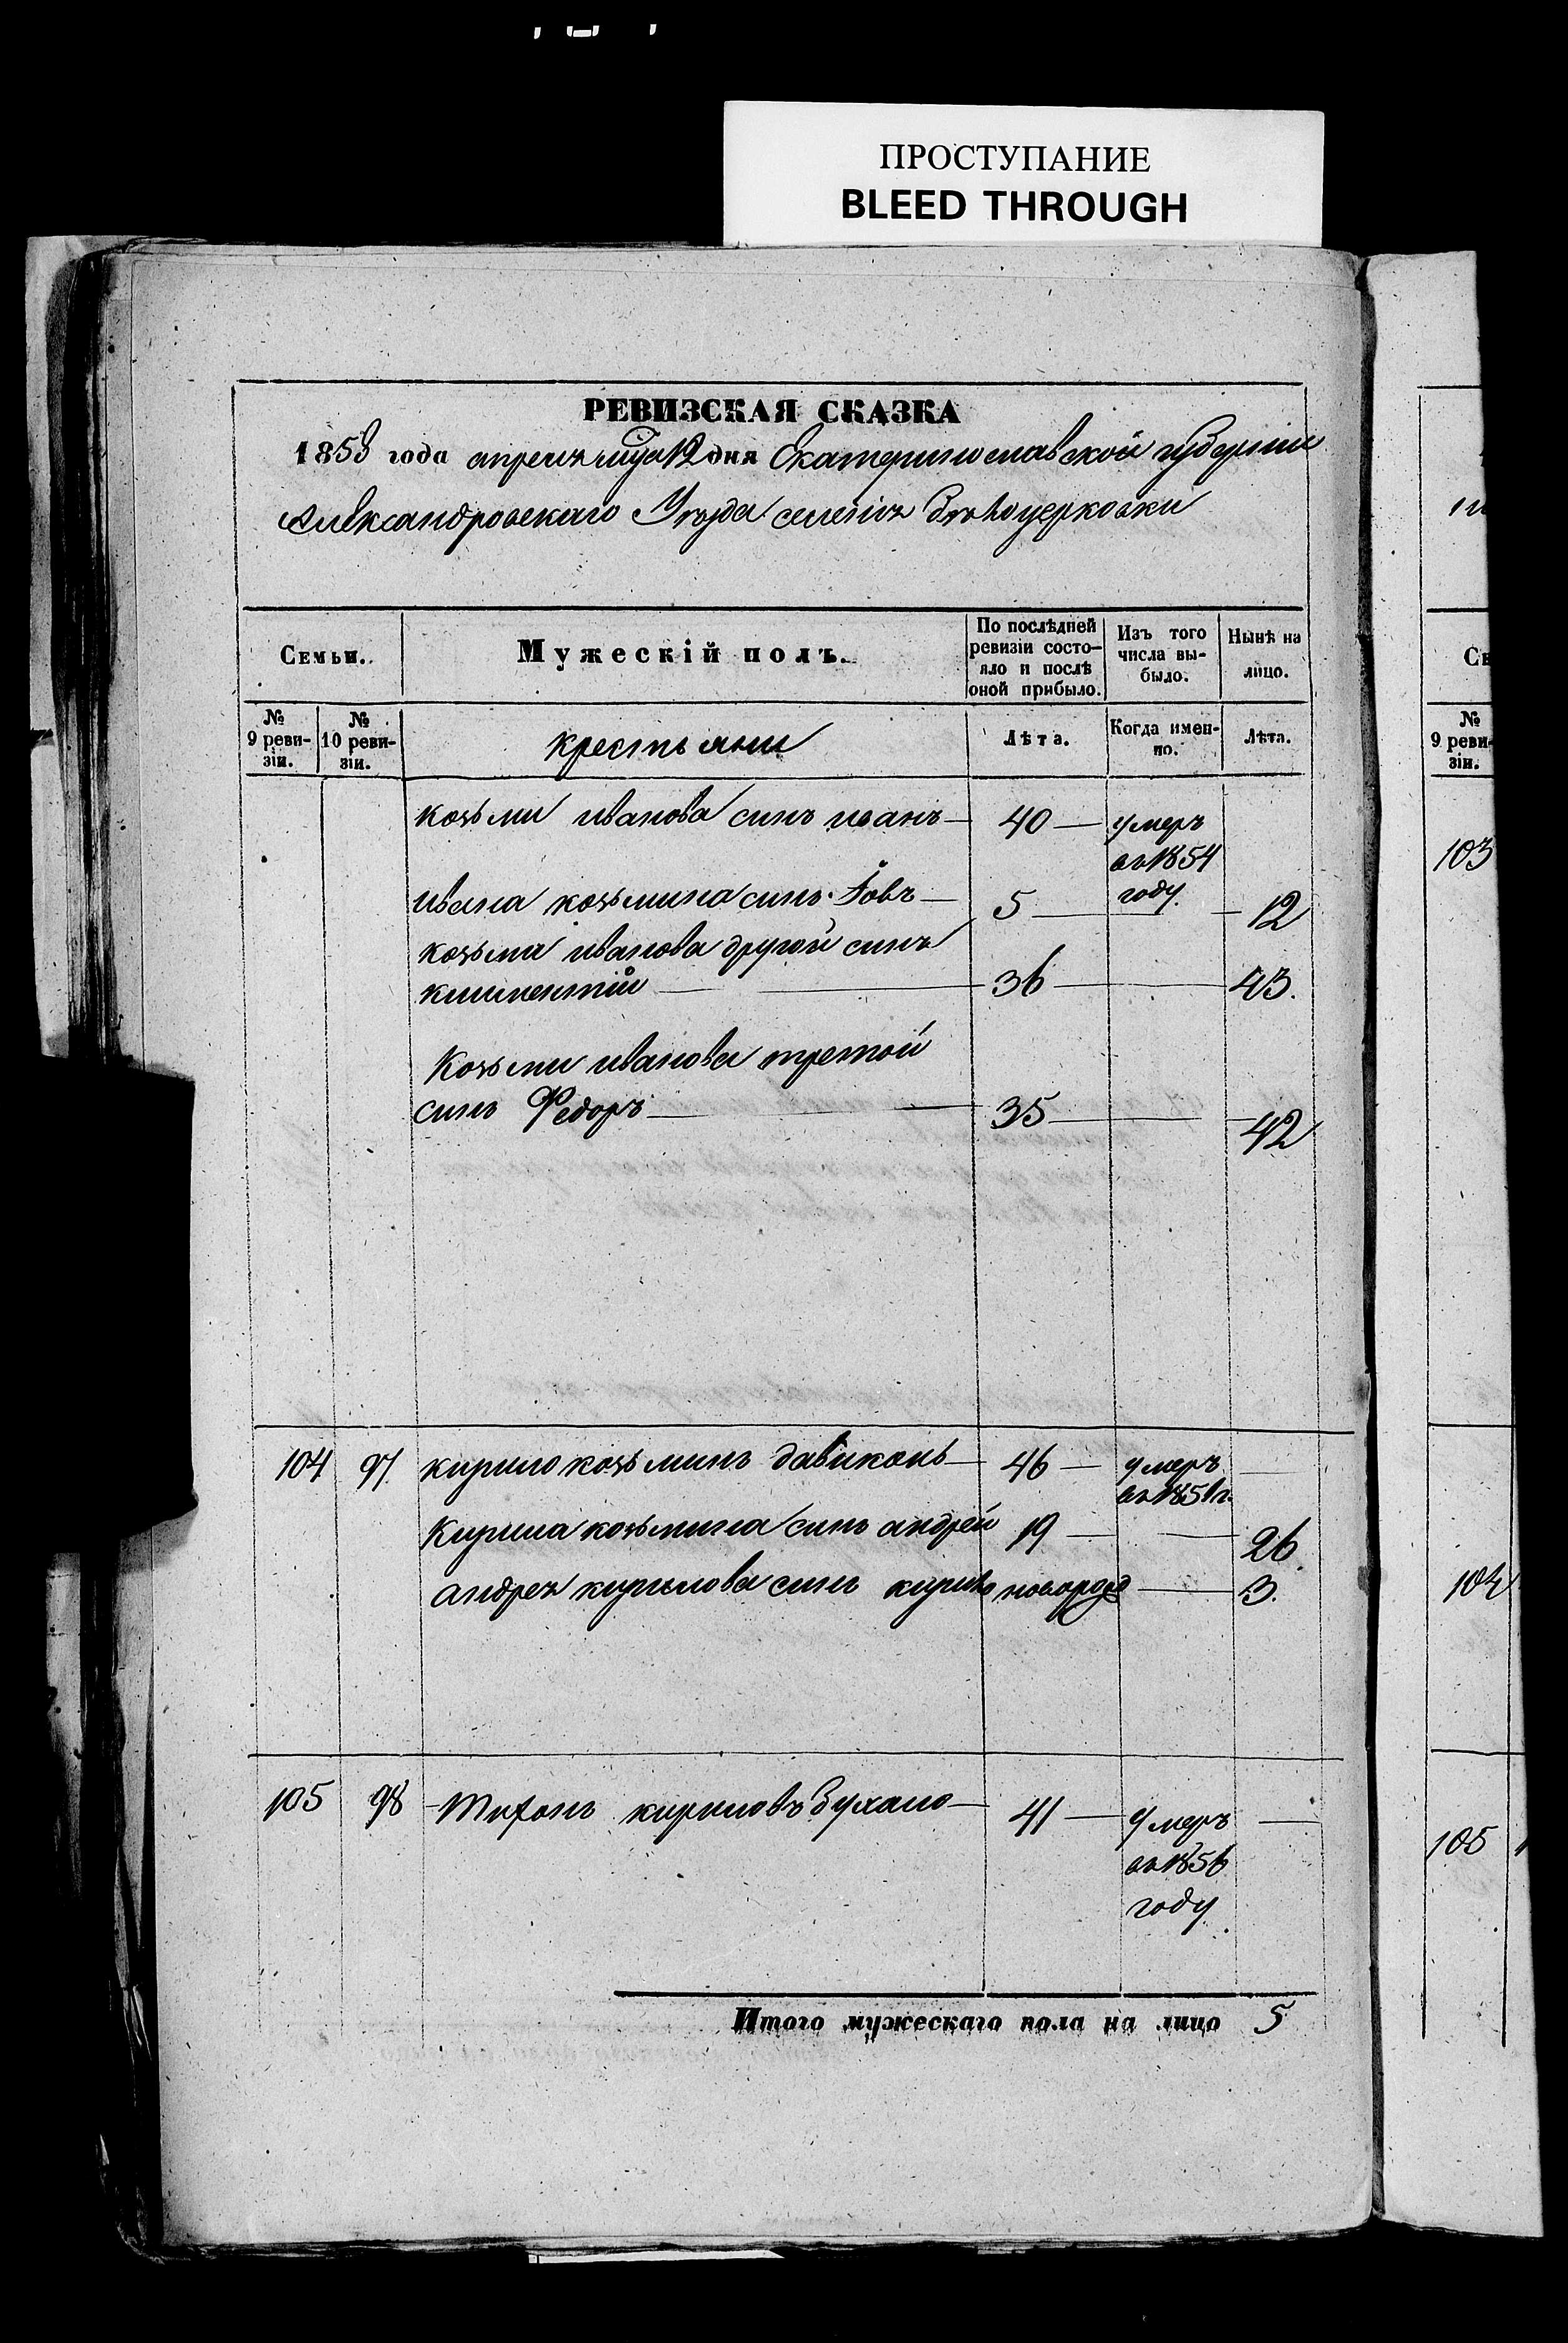 ПРОСТУПАНИЕ
BLEED THROUGH
РЕВИЗСКАЯ СКАЗКА
1858 года апреля мца 12 дня Екатеринославской губерніи
Александровскаго Уезда селенія Белоцерковки
Семьи.
Мужескій полъ.
По послѣдней ревизіи состо-
яло и послѣ
оной прибыло.
Изъ того
числа вы-
было.
Нынѣ на
лицо.
№
9 реви-
зіи.
№
10 реви-
зіи.
крестьяни
Лѣта.
Когда имен-
но.
Лѣта.
козьми иванова синъ иванъ 40 умеръ
въ 1854
году
ивана козьмина синъ Іовъ 5 12
козьми иванова другой синъ
климентій 36 43.
Козьми иванова третой
синъ Федоръ 35 42
104 97 кирило козьминъ давиконь 46 умеръ
въ 1851 г.
Кирила козьмина синъ андрей 19 26
андрея кирилова синъ кирило новорожд 3.
105 98 Тихонъ кириловъ Бухало 41 умеръ
въ 1856
году
Итого мужескаго пола на лицо 5
№
9 реви-
зіи.
103
104
105